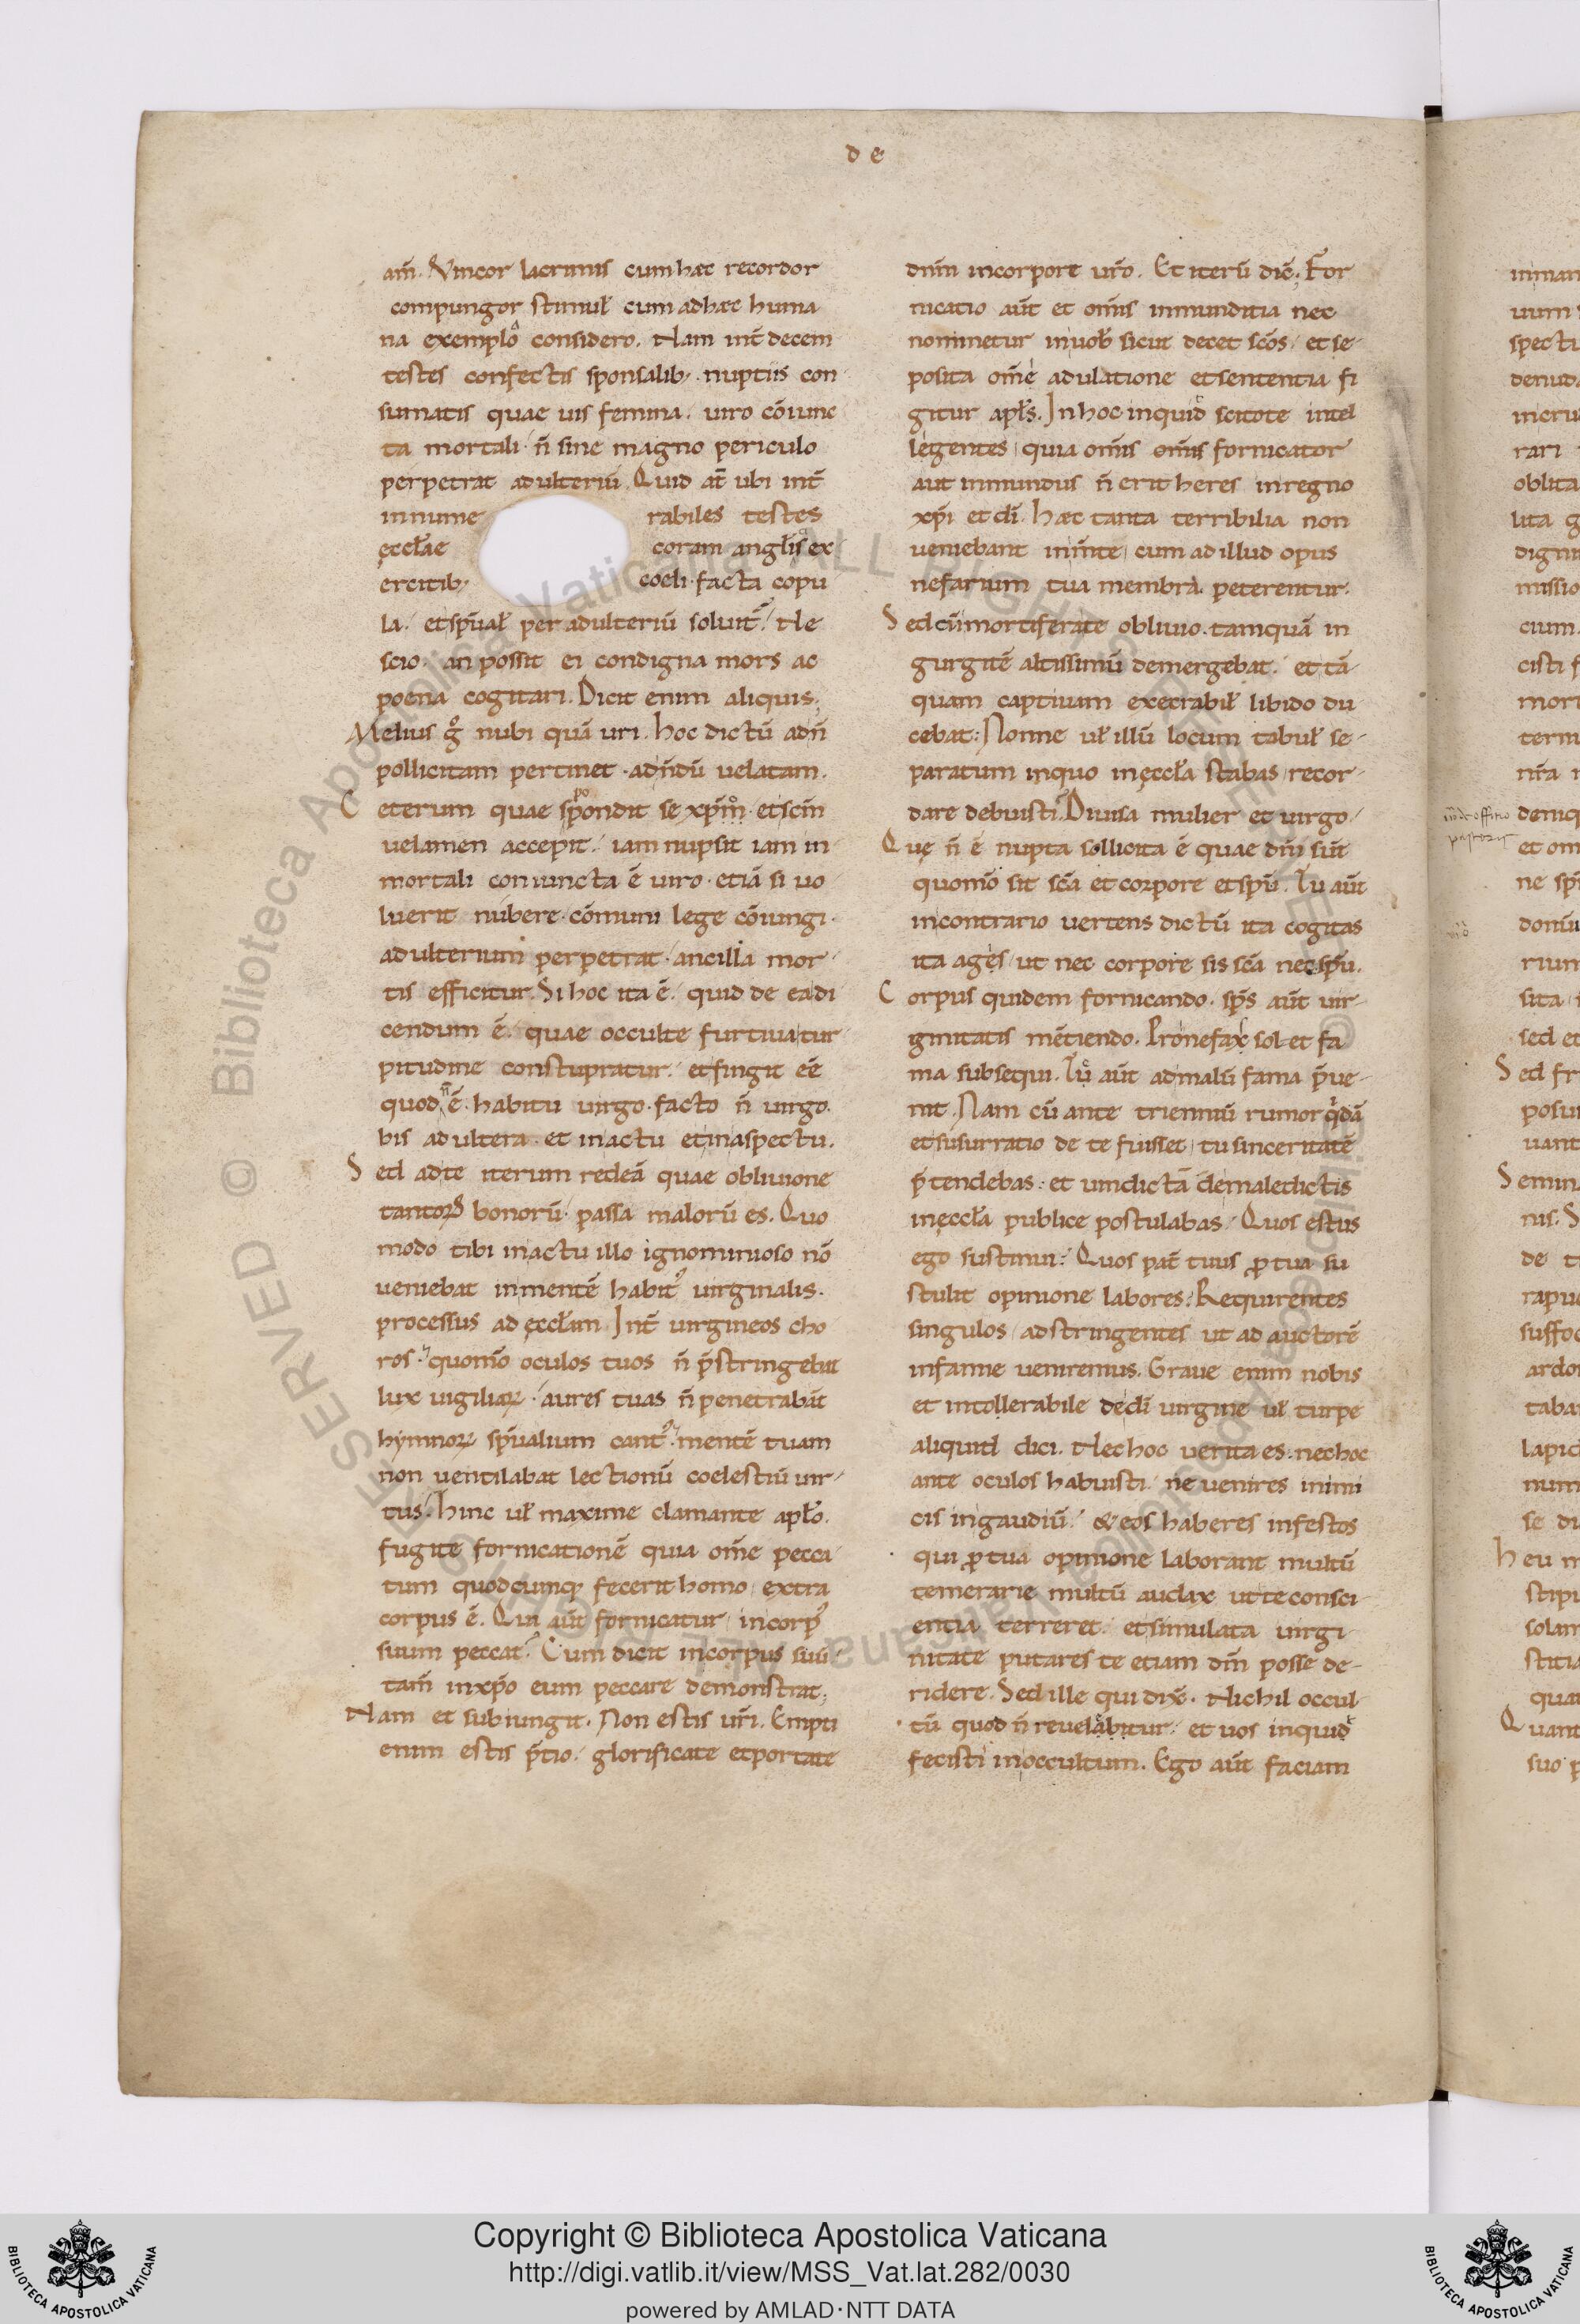 de
am̄. Vincor lacrimis cum hæc recordor
compungor stimul̄ cum ad hæc huma
na exemplo considero. Nam int̄ decem
testes confectis sponsalib; nuptiis con
sumatis quae uis femina. uiro cōiunc
ta mortali. n̄ sine magno periculo
perpetrat adulteriū. Quid at̄ ubi int̄
innume rabiles testes
ęccl̄ae coram angl̄is ex
ercitib; coeli. facta copu
la. et sp̄ual̄ per adulteriū soluit̄. Ne
scio. an possit ei condigna mors ac
poena cogitari. Dicit enim aliquis;
Melius g̊ nubi quā uri. Hoc dictū ad n̄
pollicitam pertinet. ad n̄dū uelatam.
Ceterum quae spondit se xp̄o. et sc̄m
uelamen accepit. iam nupsit iam in
mortali coniuncta ē uiro. etiā si uo
luerit nubere. cōmuni lege cōiungi.
adulterium perpetrat. ancilla mor
tis efficitur. Si hoc ita ē. quid de ea di
cendum ē. quae occulte furtiua tur
pitudine constupratur. et fingit eē
quod n̄ ē. habitu uirgo. facto n̄ uirgo.
bis adultera. et in actu et in aspectu.
Sed ad te iterum redeā quae obliuione
tantorū bonorū. passa malorū es. Quo
modo tibi in actu illo ignominioso nō
ueniebat in mentē habit᾿ uirginalis.
processus ad ęccl̄am. Int̄ uirgineos cho
ros. quom̄o oculos tuos n̄ p̄stringebat
lux uigiliaꝝ. aures tuas n̄ penetrabāt
hymnoꝝ sp̄ualium cant᾿. mentē tuam
non uentilabat lectionū coelestiū uir
tus. Hinc ul̄ maxime clamante apl̄o.
fugite fornicationē quia om̄e pecca
tum quodcumq; fecerit homo extra
corpus ē. Qui aūt fornicatur in corp᾿
suum peccat. Cum dicit in corpus suū
tam̄ in xp̄o eum peccare demonstrat;
Nam et subiungit. Non estis ur̄i. Empti
enim estis p̄tio. glorificate et portate
dn̄m in corpore ur̄o. Et iterū dic̄; For
nicatio aūt et om̄is inmunditia nec
nominetur in uob̄ sicut decet sc̄os. et se
posita om̄e adulatione et sententia fi
gitur apl̄s. In hoc inquid scitote intel
legentes quia om̄is om̄is fornicator
aut inmundus n̄ erit heres in regno
xp̄i et dī. Hæc tanta terribilia non
ueniebant in m̄te cum ad illud opus
nefarium tua membra peterentur.
Sed cū mortiferate obliuio. tamquā in
gurgitē altissimū demergebat. et tā
quam captiuam execrabil̄ libido du
cebat: Nonne ul̄ illū locum tabul̄ se
paratum in quo in ęccl̄a stabas recor
dare debuisti. Diuisa mulier et uirgo.
Quę n̄ ē nupta sollicita ē quae dn̄i sūt
quom̄o sit sc̄a et corpore et sp̄u. Tu aūt
in contrario uertens dictū ita cogitas
ita ages ut nec corpore sis sc̄a nec sp̄u.
Corpus quidem fornicando. sp̄s aūt uir
ginitatis mētiendo. Pro nefax sol et fa
ma subsequi. Tu aūt ad malū fama p̄ue
nit. Nam cū ante trienniū rumor q̇dā
et susurratio de te fuisset tu sinceritatē
p̄tendebas. et uindictā de maledictis
in ęccl̄a publice postulabas. Quos estus
ego sustinui. Quos pat̄ tuus ꝓ tua su
stulit opinione labores. Requirentes
singulos adstringentes ut ad auctorē
infamie ueniremus. Graue enim nobis
et intollerabile de dī uirgine ul̄ turpe
aliquid dici. Nec hoc uerita es. nec hoc
ante oculos habuisti ne uenires inimi
cis in gaudiū. & eos haberes infestos
qui ꝓ tua opinione laborant multū
temerarie multū audax ut te consci
entia terreret. et simulata uirgi
nitate putares te etiam dn̄m posse de
ridere. Sed ille qui dix̄. Nichil occul
tū quod n̄ reuelabitur. et uos inquid
fecisti in occultum. Ego aūt faciam
Copyright © Biblioteca Apostolica Vaticana
http://digi.vatlib.it/view/MSS_Vat.lat.282/0030
powered by AMLAD·NTT DATA